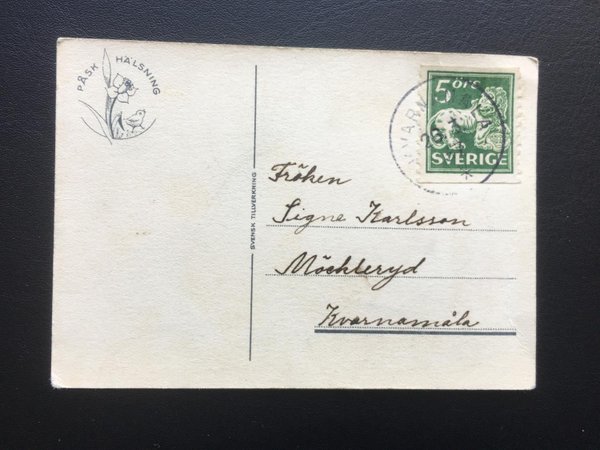 PÅSK HÄLSNING
5 ÖRE
SVERIGE
SVENSK TILLVERKNING
Fröken
Signe Karlsson
Möckleryd
Kvarnamåla